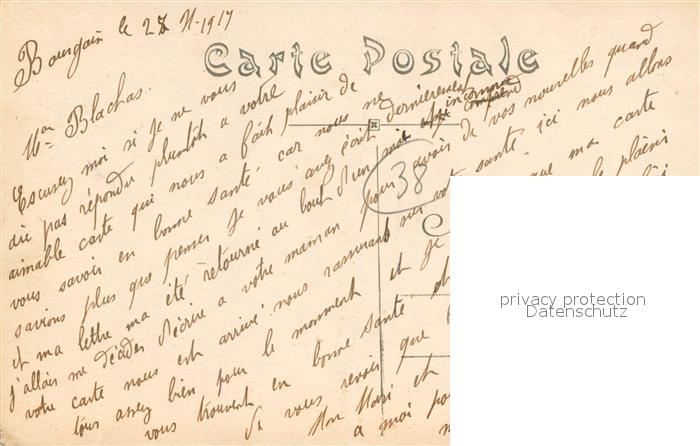 Bourgoin le 27 N-1917
Carte Postale
Mon Blachas.
Escusez moi si je ne vous
ai pas répondu pluntôt a votre
aimable carte qui nous a fait plaisir de
vous savoir en bonne santé. car nous ne
savions plus que penser je vous avez écrit dernièrement
et ma lettre ma été retourné au bout d'en moi inconnu
j'allais me décider d'écrire a votre maman pour avoir de vos nouvelles quand
votre carte nous est arrivé nous rassurant sur votre santé. ici nous allons
tous assez bien pour le monment et je que ma carte
vous trouvent en bonne santé et le plaisir
de vous revoir que
Mon Mari et
a moi pour
38
privacy protection
Datenschutz